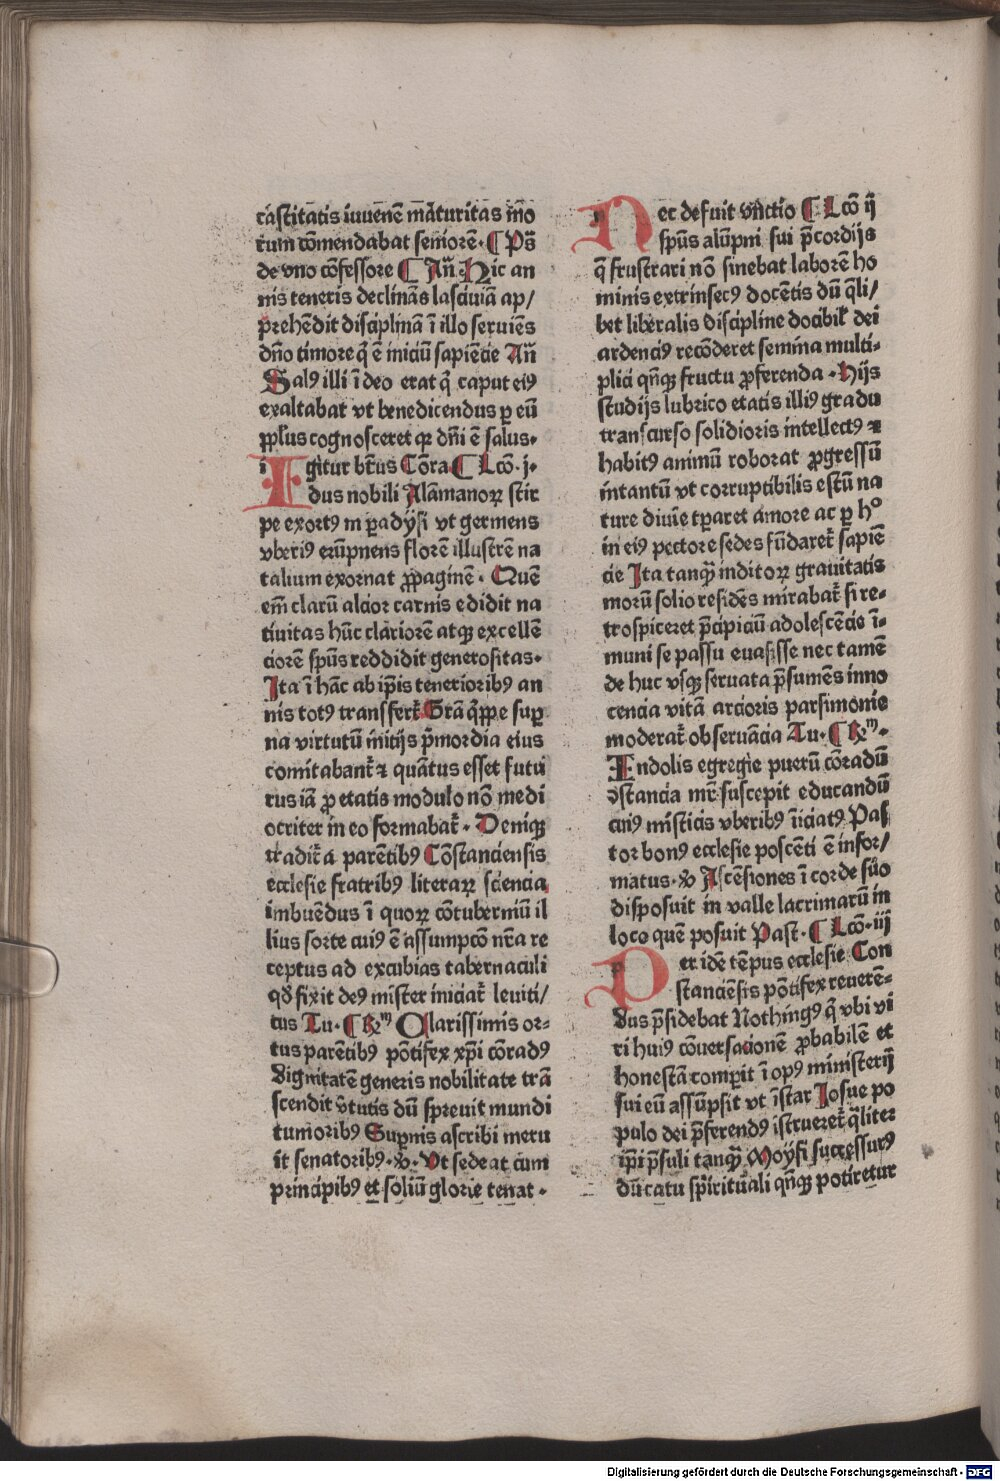 castitatis iuuenē māturitas mo
rum cōmendabat seniorē · ¶ Ps̄
de vno cōfessore ¶ An̄ · Hic an
nis teneris declinās lasciuiā ap/
prehēdit disciplinā ī illo seruiēs
dn̄o timore q̄ ē iniciū sapiēcie An̄
Salꝰ illi ī deo erat q̄ caput eiꝰ
exaltabat vt benedicendus ꝑ eū
pp̄lus cognosceret qꝛ dn̄i ē salus·
Igitur bt̄us Cōra ¶ Lcō · j·
dus nobili Alāmanoꝝ stir
pe exortꝰ in ꝑadysi vt germens
vberiꝰ erūpnens florē illustrē na
talium exornat ꝓpaginē · Quē
em̄ clarū alcior carnis edidit na
tiuitas hūc clariorē atqꝫ excellē
ciorē sp̄us reddidit generositas·
Ita ī hāc ab ip̄is tenerioribꝰ an
nis totꝰ transfert̄ Grā q̄ppe suꝑ
na virtutū inicijs p̄mordia eius
comitabant̄ ⁊ quātus esset futu
rus iā ꝓ etatis modulo nō medi
ocriter in eo formabat̄ · Deniqꝫ
tradit̄ a parētibꝰ Cōstanciensis
ecclesie fratribꝰ literaꝝ sciencia
imbuēdus ī quoꝝ cōtuberniū il
lius sorte cuiꝰ ē assumpcō nr̄a re
ceptus ad excubias tabernaculi
qd̄ fixit deꝰ mister iniciat̄ leuiti/
cus Tu · ¶ Rm̄ Clarissimis or-
tus parētibꝰ pōtifex xp̄i cōradꝰ
dignitatē generis nobilitate trā
scendit v̄tutis dū spreuit mundi
tumoribꝰ Suꝑnis ascribi meru
it senatoribꝰ · v̄ · Vt sedeat cum
principibꝰ et soliū glorie tenat ·
Nec defuit vn̄ctio ¶ Lcō ij
sp̄us alūpni sui p̄cordijs
q̄ frustrari nō sinebat laborē ho
minis extrinsecꝰ docētis dū q̄li/
bet liberalis discipline docibil̄ dei
ardenciꝰ recōderet semina multi-
plici qn̄qꝫ fructu ꝓferenda · Hijs
studijs lubrico etatis illiꝰ gradu
transcurso solidioris intellectꝰ ⁊
habitꝰ animū roborat ꝓgressū
intantū vt corruptibilis estū na
ture diuīe tꝑaret amore ac ꝑ hº
in eiꝰ pectore sedes fūdaret̄ sapiē
cie Ita tanqꝫ̄ inditoꝝ grauitatis
morū solio residēs mirabat̄ si re-
trospiceret p̄cipiciū adolescēcie ī-
muni se passu euasisse nec tamē
de huc vsqꝫ seruata p̄sumēs inno
cencia vitā arcioris parsimonie
moderat̄ obseruācia Tu · ¶ Rm̄ ·
Indolis egregie puerū cōradū
ꝯstancia mr̄ suscepit educandū
cuiꝰ misticis vberibꝰ īiciatꝰ Pas
tor bonꝰ ecclesie poscēti ē infor/
matus · v̄ Ascēsiones ī corde suo
disposuit in valle lacrimarū in
loco quē posuit Past · ¶ Lcō · iij
Per idē tēpus ecclesie Con
stanciēsis pōtifex reuerē-
dus p̄sidebat Nothingꝰ q̄ vbi vi
ri huiꝰ cōuersacionē ꝓbabilē et
honestā comꝑit ī opꝰ ministerij
sui eū assūpsit vt īstar Iosue po
pulo dei p̄ferendꝰ īstrueret̄ q̄liter
ip̄i p̄suli tanqꝫ̄ Moysi successurꝰ
dūcatu spiritūali qn̄qꝫ potiretur
Digitalisierung gefördert durch die Deutsche Forschungsgemeinschaft - DFG